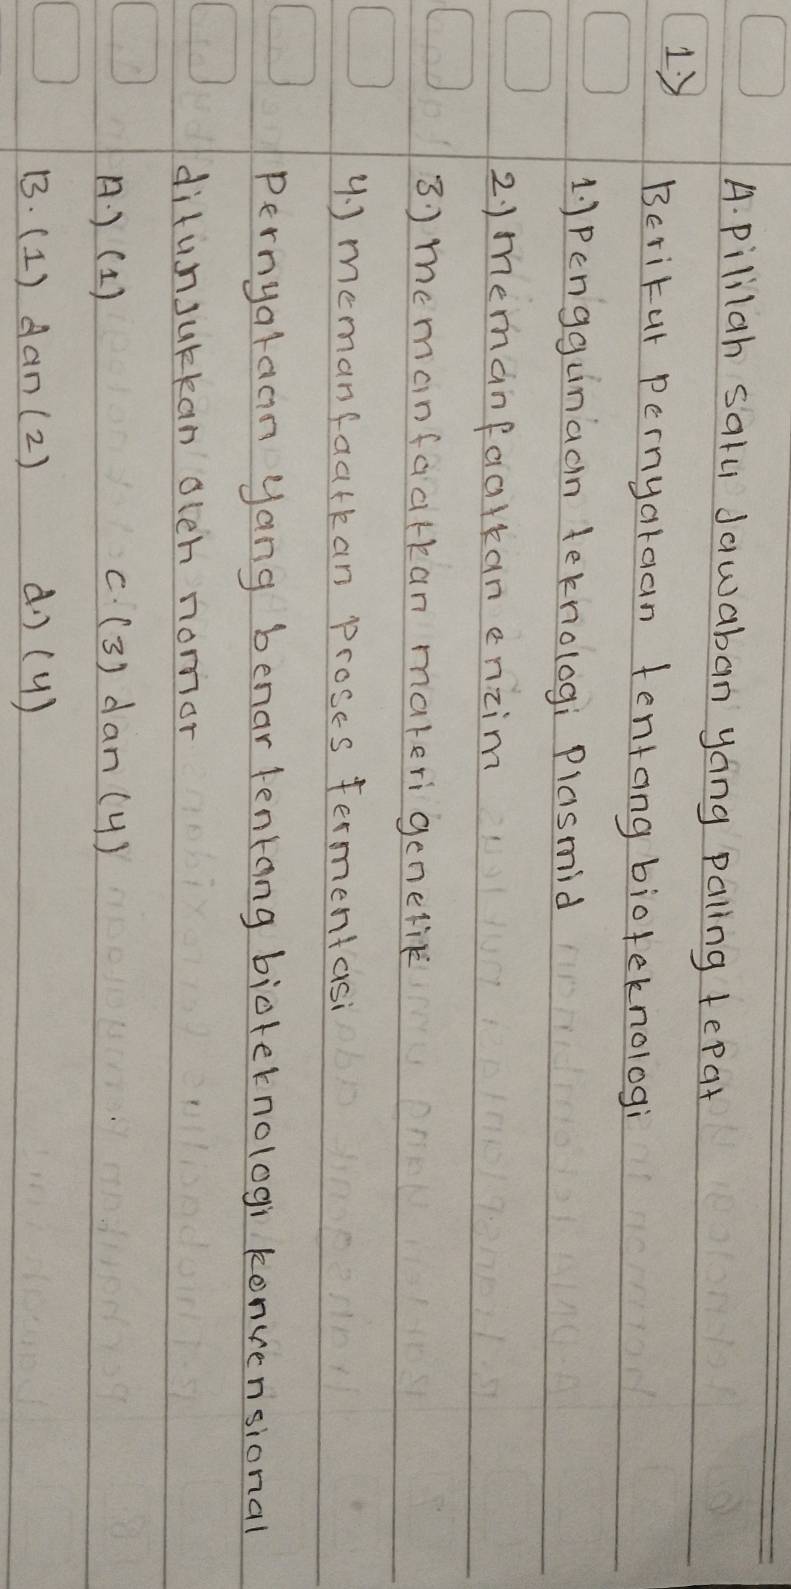 A. Pililah satu Jawaban yang paling tepat
1.) Berikut pernyataan tentang bioteknologi
1.) Penggunaan teknologi Plasmid
2.) memanfaatkan enzim
3.) memanfaatkan materi genetik
4.) memanfaatkan proses fermentasi
Pernyataan yang benar tentang bioteknologi konvensional
ditunjukkan oleh nomor
A.) (1) c. (3) dan (4)
B. (1) dan (2) d.) (4)